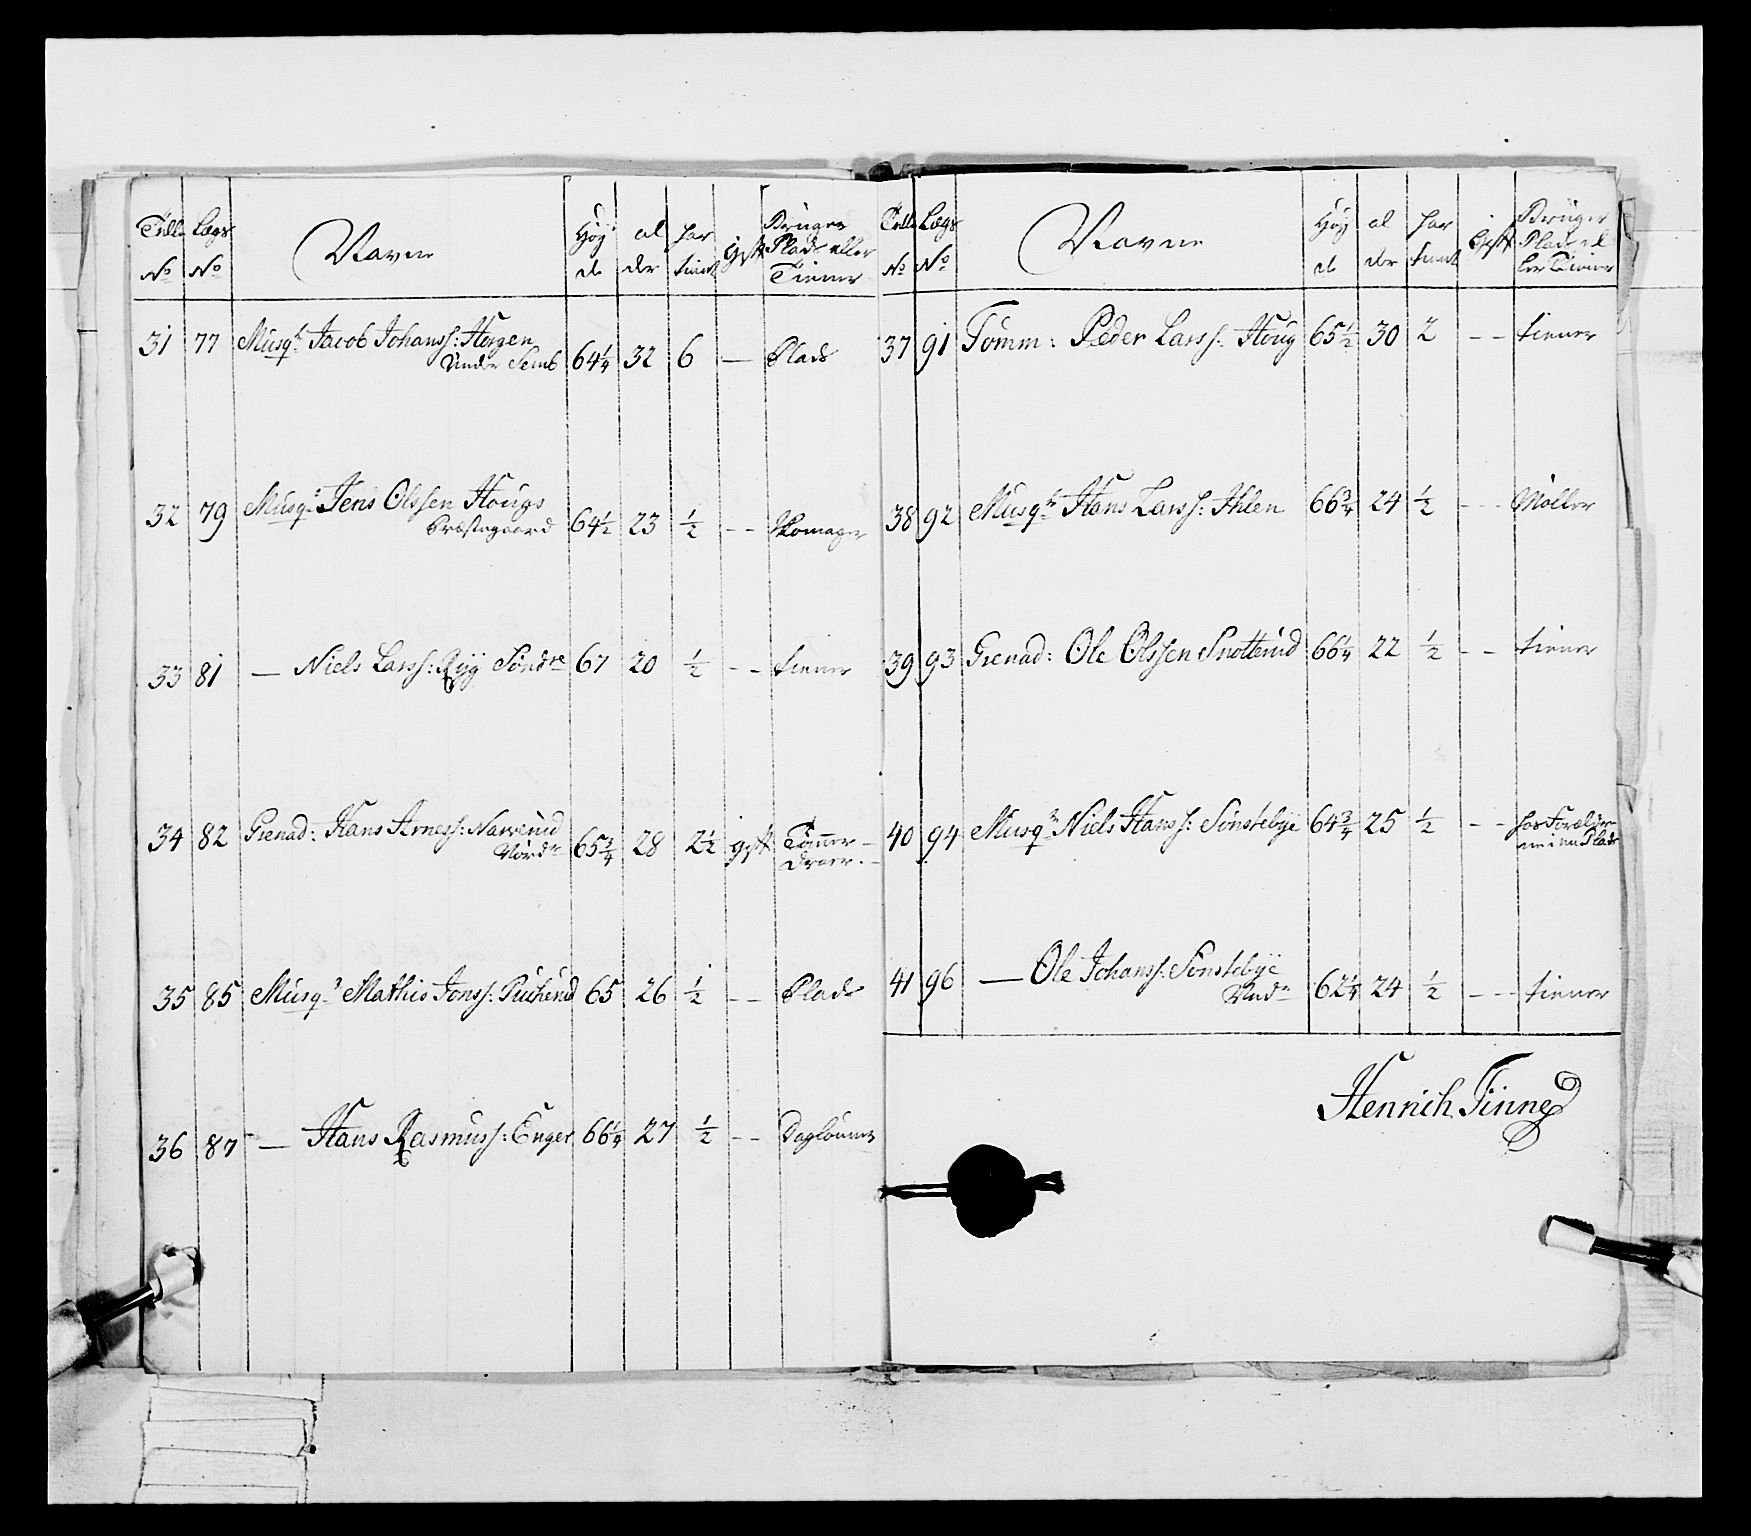 Tille Lægs Navne Høy al har gift Bruger
No No de der tient Plads eller
Tiener
31 77 Musqr Jacob Johanss: Horgen
Under Semb 64 1/4 32 6 — Plads
32 79 Musqr Jens Olssen Hougs
Præstegaard 64 1/2 23 1/2 - - Skomager
33 81 — Niels Larss: Ryg Søndre 67 20 1/2 - - tiener
34 82 Grenad: Hans Arness: Narverud
Nordr 65 3/4 28 2 1/2 gift Tømmer-
draer.
35 85 Musqr Mathis Jonss: 65 26 1/2 - - Plads
36 87 — Hans Rasmuss: Enger 66 1/4 27 1/2 - - Daglønner
Tille Lægs Navne Høy al har gift Bruger
No No de der tient Plads el
ler Tiener
37 91 Tømm: Peder Larss: Houg 65 1/2 30 2 - - tiener
38 92 Musqr Hans Larss: Ihlen 66 3/4 24 1/2 - - Møller
39 93 Grenad: Ole Olssen Snotterud 66 1/4 22 1/2 - - tiener
40 94 Musqr Niels Hanss: Sønstebye 64 3/4 25 1/2 - - hos Forældre
ne i en Plads
41 96 — Ole Johanss: Sønstebye
Undr 62 1/4 24 1/2 - - tiener
Henrich Finne